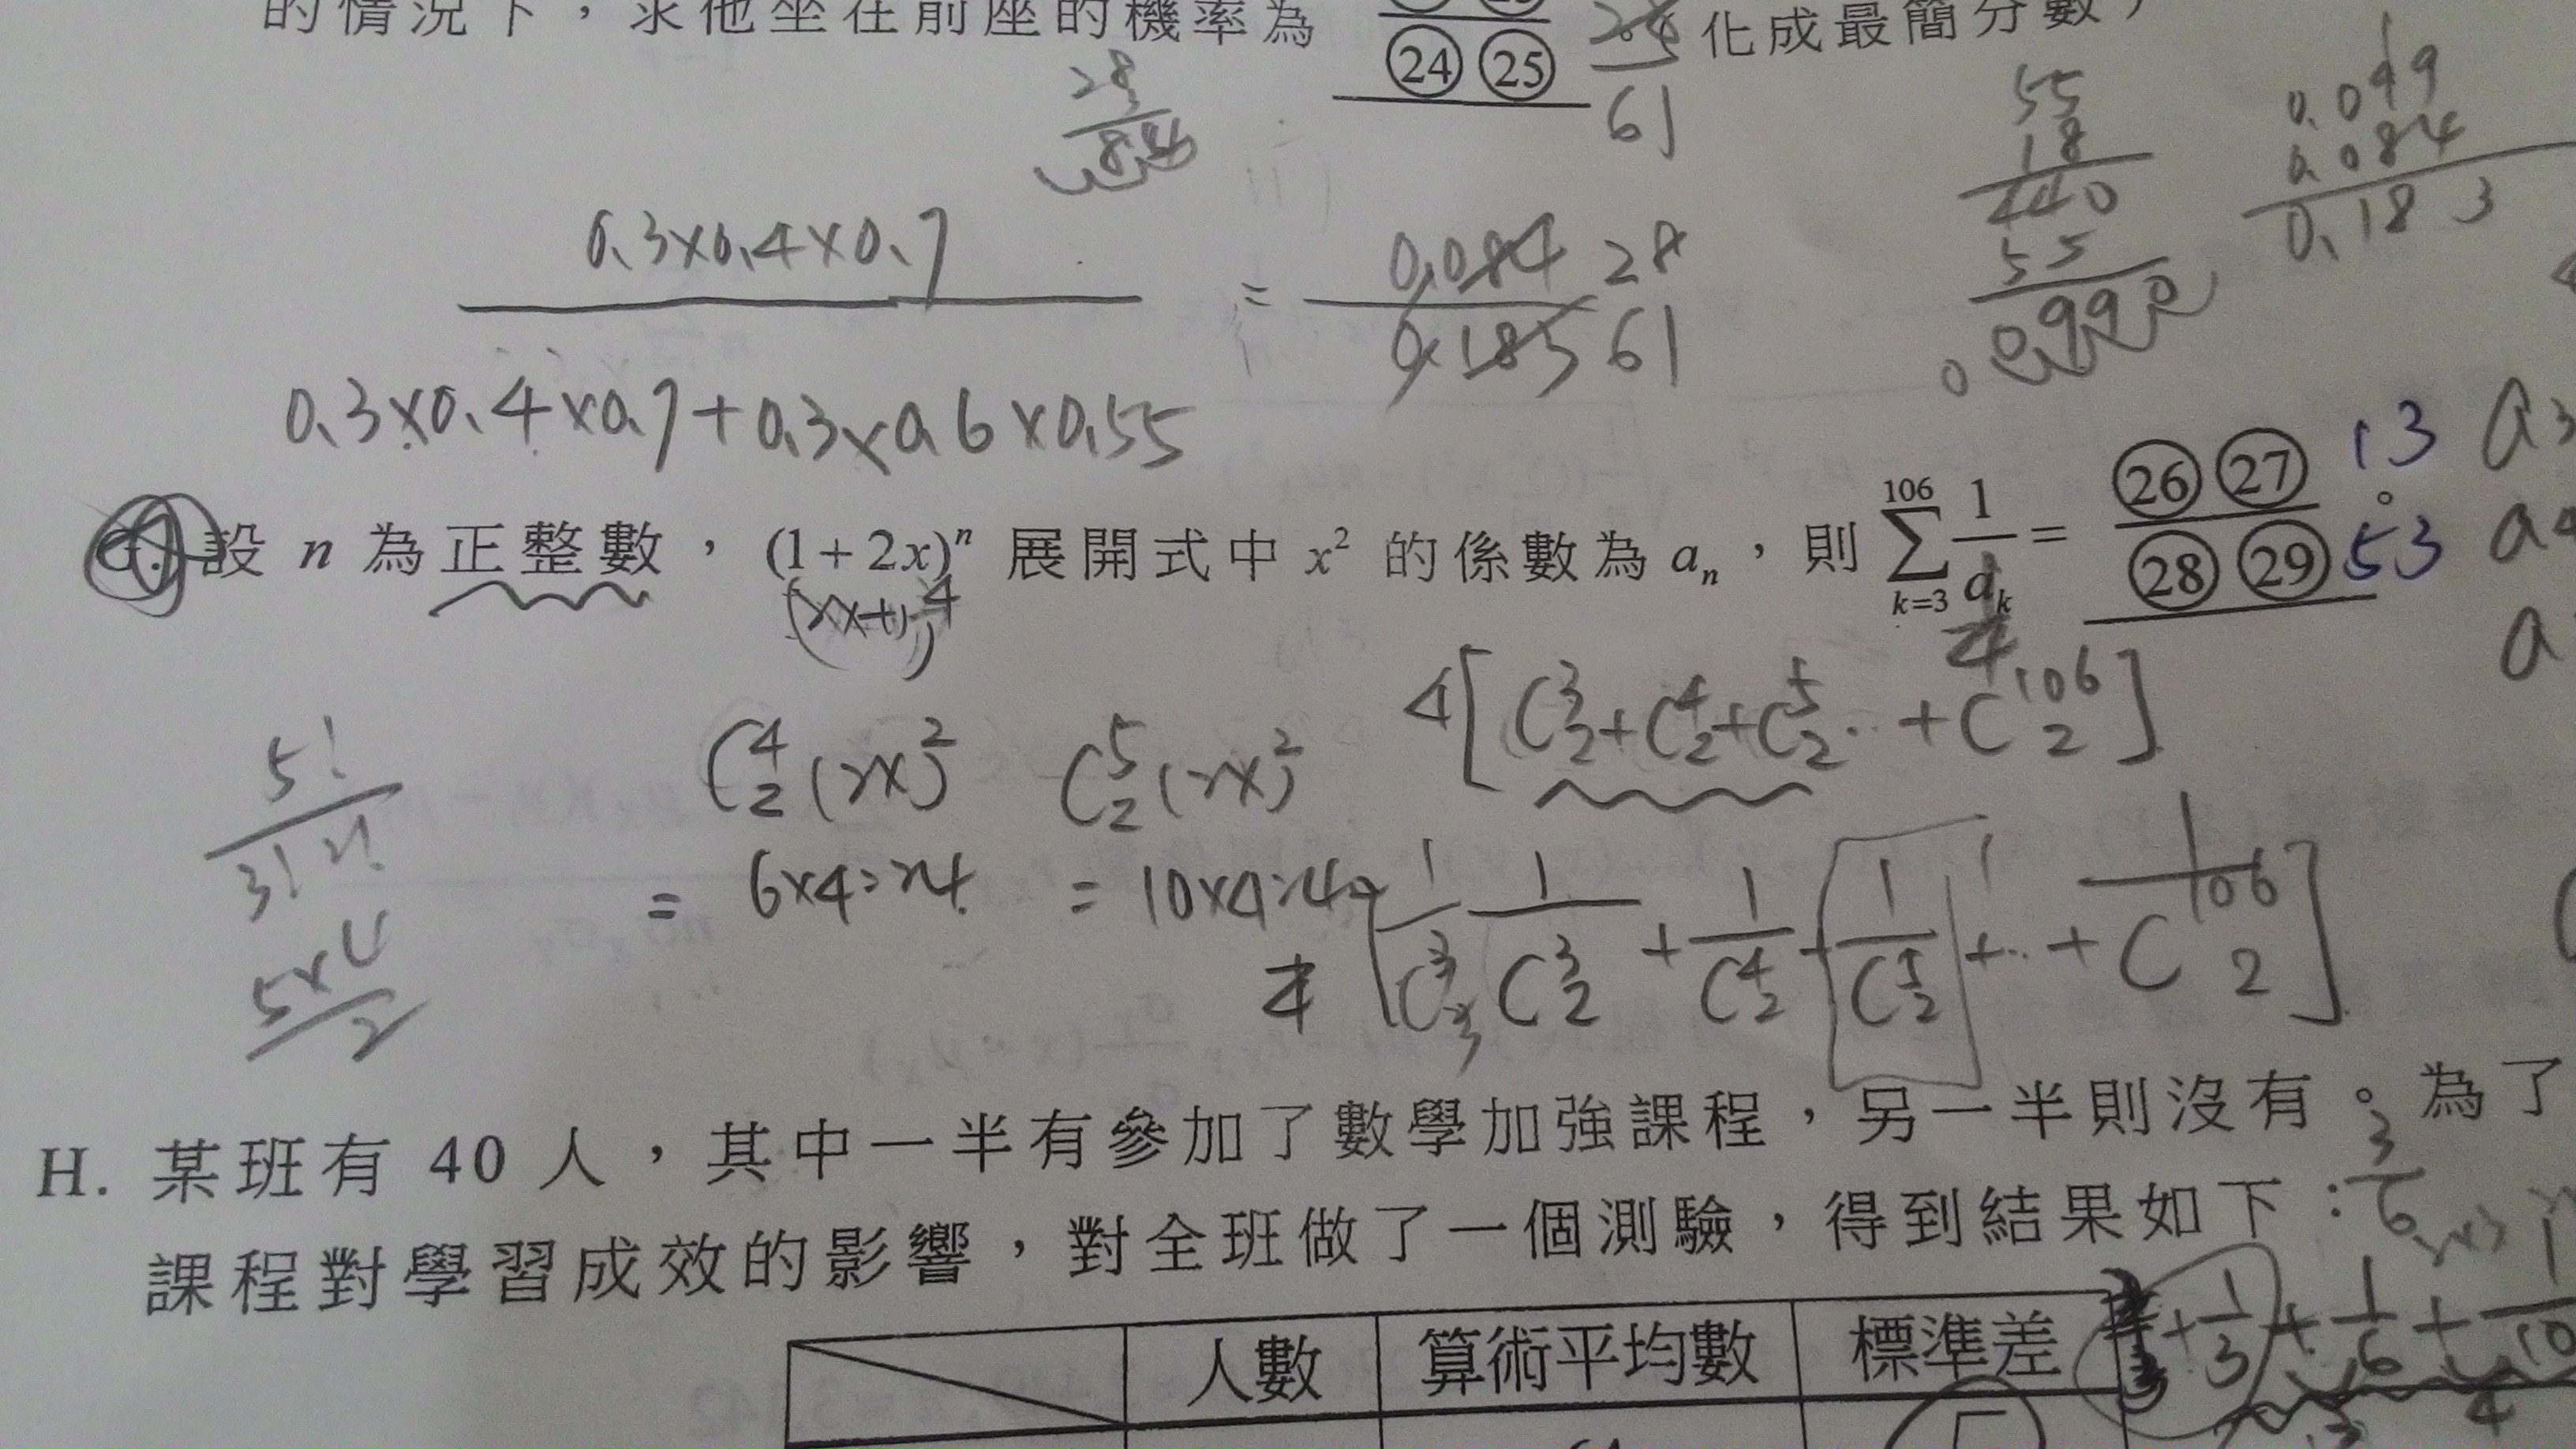 的情況下，求他坐在前座的機率為 ㉔㉕ 化成最簡分數，
61
28
0.3×0.4×0.7
= 0.084 28
0.183 61
0.3×0.4×0.7+0.3×0.6×0.55
55
18
440
55
0.990
0.099
0.084
0.183
設 n 為正整數，(1+2x)^n 展開式中 x^2 的係數為 a_n，則 \sum_{k=3}^{106} 1/a_k = ㉖㉗/㉘㉙。
13
53
(2x+1)^4
4[C^3_2+C^4_2+C^5_2..+C^106_2]
5!
3!2!
5×4
2
C^4_2(2x)^2 C^5_2(2x)^2
= 6×4=24 = 10×4=40
1/C^3_2 + 1/C^4_2 + 1/C^5_2 +..+ 1/C^106_2]
H. 某班有 40 人，其中一半有參加了數學加強課程，另一半則沒有。為了
課程對學習成效的影響，對全班做了一個測驗，得到結果如下：
3
6
+1/3+1/6+1/10
人數 算術平均數 標準差